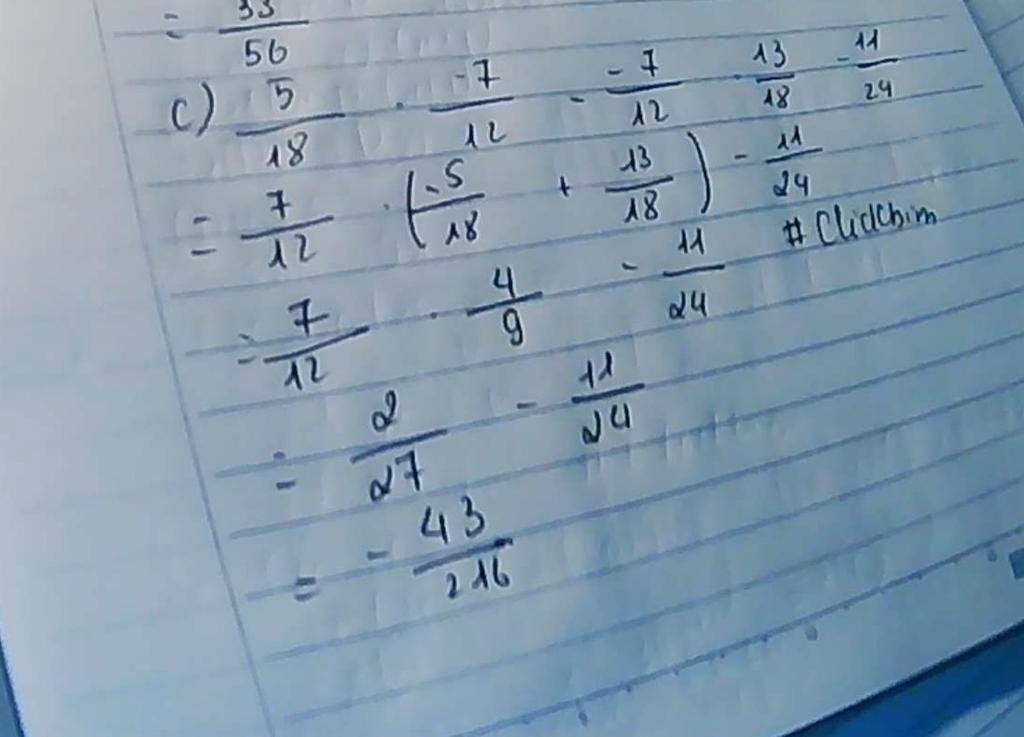 = 33/56
c) 5/18 . -7/12 - -7/12 . 13/18 - 11/24
= 7/12 . (-5/18 + 13/18) - 11/24
# Clidchim
= 7/12 . 4/9 - 11/24
= 2/27 - 11/24
= - 43/216